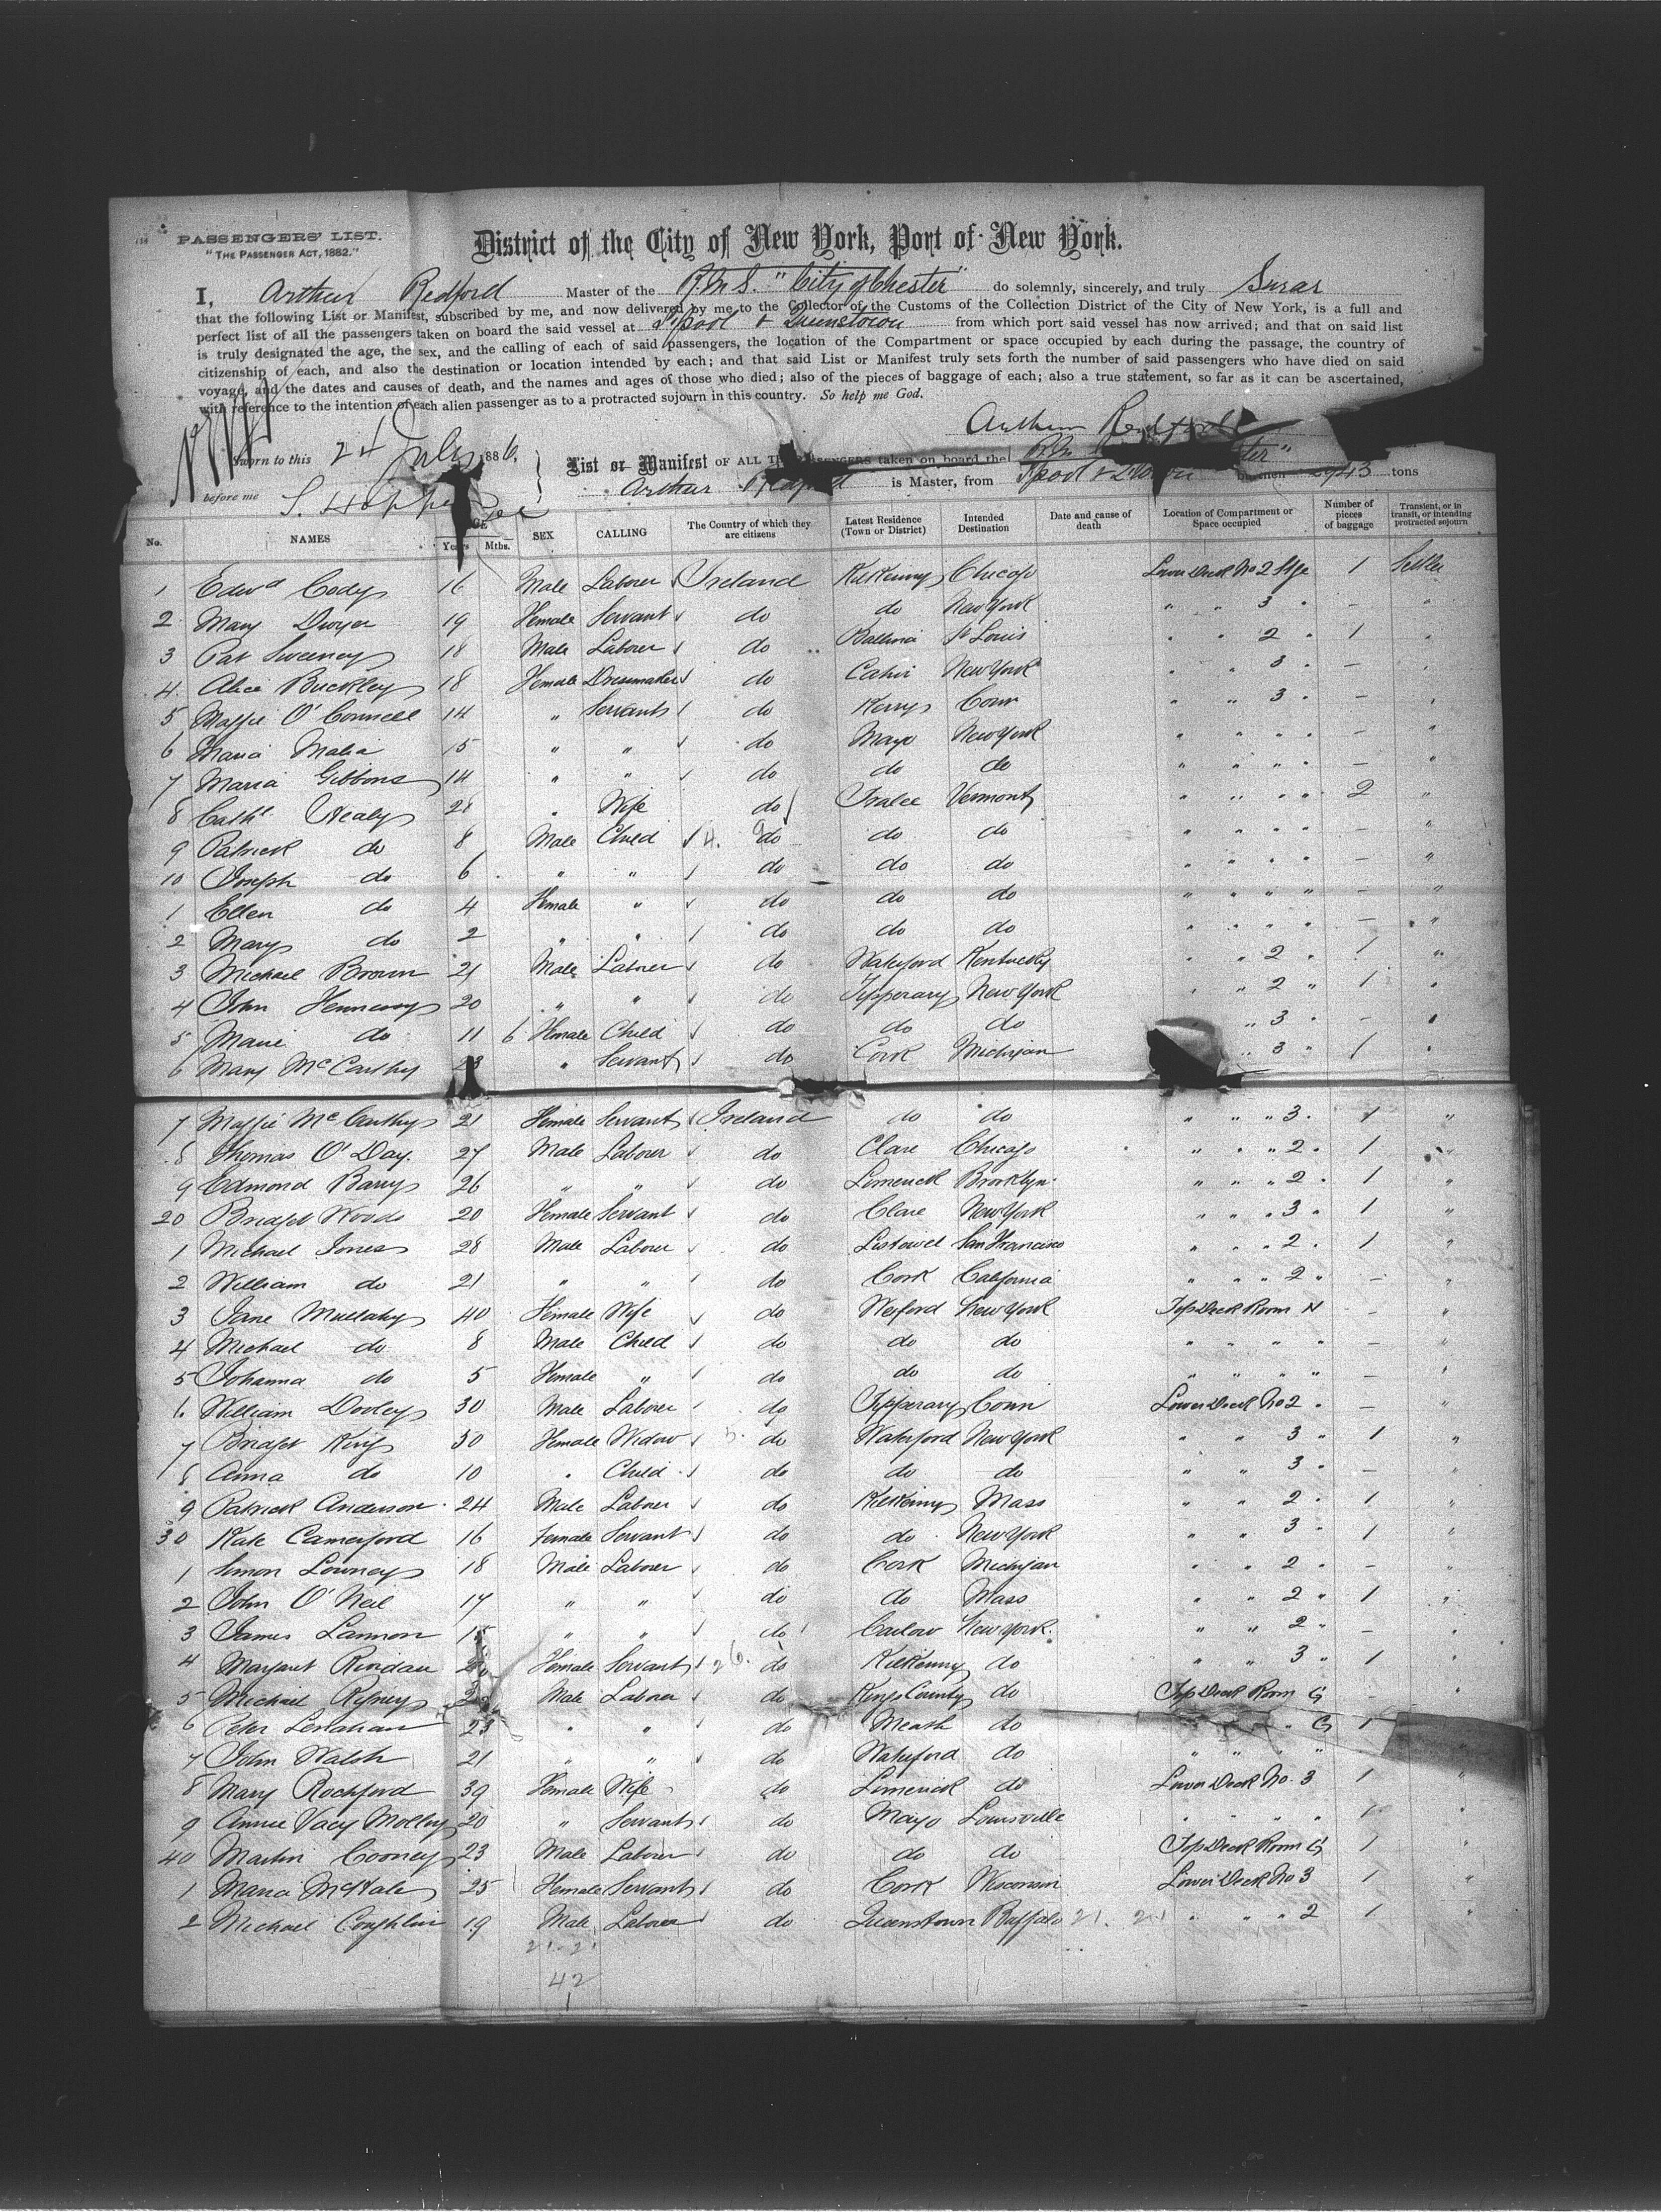 PASSENGERS' LIST.
"THE PASSENGER ACT, 1882."
District of the City of New York, Port of New York.
I, Arthur Redford Master of the R.M.S. "City of Chester" do solemnly, sincerely, and truly Swear
that the following List or Manifest, subscribed by me, and now delivered by me to the Collector of the Customs of the Collection District of the City of New York, is a full and
perfect list of all the passengers taken on board the said vessel at L'pool & Queenstown from which port said vessel has now arrived; and that on said list
is truly designated the age, the sex, and the calling of each of said passengers, the location of the Compartment or space occupied by each during the passage, the country of
citizenship of each, and also the destination or location intended by each; and that said List or Manifest truly sets forth the number of said passengers who have died on said
voyage, and the dates and causes of death, and the names and ages of those who died; also of the pieces of baggage of each; also a true statement, so far as it can be ascertained,
with reference to the intention of each alien passenger as to a protracted sojourn in this country. So help me God.
Arthur Redford
Sworn to this 24 July 1886,
List or Manifest OF ALL THE PASSENGERS taken on board the R.M.
before me
Arthur Redford is Master, from L'pool & Q'town burthen 2943 tons
No. NAMES AGE Years Mths. SEX CALLING The Country of which they are citizens Latest Residence (Town or District) Intended Destination Date and cause of death Location of Compartment or Space occupied Number of pieces of baggage Transient, or in transit, or intending protracted sojourn
1 Edwd Cody 16 Male Laborer Ireland Kilkenny Chicago Lower Deck No 2 Stge 1 Settler
2 Mary Dwyer 19 Female Servant do do New York " " 3 " – "
3 Pat Sweeney 18 Male Laborer do Ballina St Louis " " 2 " 1 "
4 Alice Buckley 18 Female Dressmaker do Cahir New York " " 3 " – "
5 Maggie O'Connell 14 " Servant do Kerry Conn " " 3 " – "
6 Maria Malia 15 " " do Mayo New York " " " " – "
7 Maria Gibbons 14 " " do do do " " " " – "
8 Cathe Healy 28 " Wife do Tralee Vermont " " " " 2 "
9 Patrick do 8 Male Child 4. do do do " " " " – "
10 Joseph do 6 " " do do do " " " " – "
1 Ellen do 4 Female " do do do " " " " – "
2 Mary do 2 " " do do do " " " " – "
3 Michael Brown 21 Male Laborer do Waterford Kentucky " " 2 " 1 "
4 John Hennessy 20 " " do Tipperary New York " " 2 " 1 "
5 Marie do 11 6 Female Child do do do " 3 " – "
6 Mary McCarthy 23 " Servant do Cork Michigan " 3 " 1 "
7 Maggie McCarthy 21 Female Servant Ireland do do " " " 3 " 1 "
8 Thomas O'Day 27 Male Laborer do Clare Chicago " " " 2 " 1 "
9 Edmond Barry 26 " " do Limerick Brooklyn " " " 2 " 1 "
20 Bridget Woods 20 Female Servant do Clare New York " " " 3 " 1 "
1 Michael Jones 28 Male Laborer do Listowel San Francisco " " " 2 " 1 "
2 William do 21 " " do Cork California " " " 2 " – "
3 Jane Mullahy 40 Female Wife do Wexford New York Top Deck Room N – "
4 Michael do 8 Male Child do do do " " " " – "
5 Johanna do 5 Female " do do do " " " " – "
6 William Dooley 30 Male Laborer do Tipperary Conn Lower Deck No 2 " – "
7 Bridget King 50 Female Widow do Waterford New York " " 3 " 1 "
8 Anna do 10 " Child do do do " " 3 " – "
9 Patrick Anderson 24 Male Laborer do Kilkenny Mass " " 2 " 1 "
30 Kate Camerford 16 Female Servant do do New York " " 3 " 1 "
1 Simon Lowney 18 Male Laborer do Cork Michigan " " 2 " – "
2 John O'Neil 17 " " do do Mass " " 2 " 1 "
3 James Lannon " " do Carlow New York " " 2 " – "
4 Margaret Riordan Female Servant 26. do Kilkenny do " " 3 " 1 "
5 Michael Male Laborer do Kings County do Top Deck Room G – "
6 Peter Lenahan 23 " " do Meath do " G 1
7 John Walsh 21 " " do Waterford do " " " "
8 Mary Rochford 39 Female Wife do Limerick do Lower Deck No. 3 1 "
9 Annie Vacy Molloy 20 " Servant do Mayo Louisville " " " " 1 "
40 Martin Cooney 23 Male Laborer do do do Top Deck Room G 1 "
1 Maria McHale 25 Female Servant do Cork Wisconsin Lower Deck No 3 1 "
2 Michael Coughlin 19 Male Laborer do Queenstown Buffalo 21. 21 " " " 2 1 "
21. 21
42